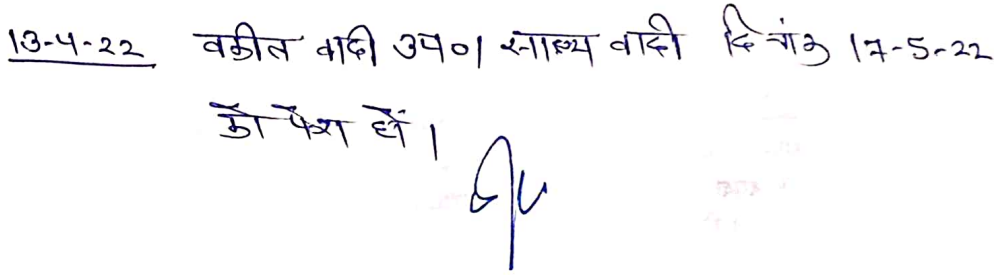 13-4-22 वकील वादी उप०। साक्ष्य वादी दिनांक 17-5-22
को पेश हों।